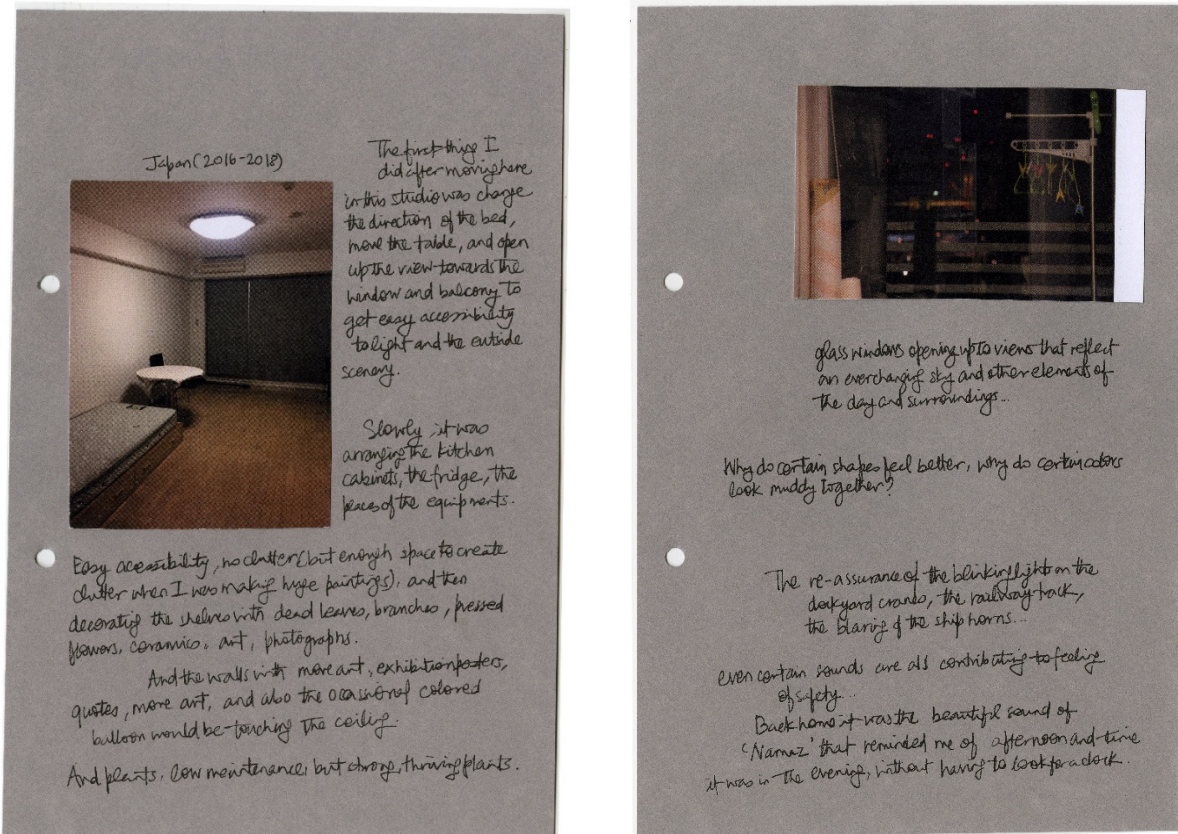 Japan (2016-2018)
The first thing I
did after moving here
in this studio was change
the direction of the bed,
move the table, and open
up the view towards the
window and balcony to
get easy accessibility
to light and the outside
scenery.
Slowly, it was
arranging the kitchen
cabinets, the fridge, the
places of the equipments.
Easy accessibility, no clutter (but enough space to create
clutter when I was making huge paintings), and then
decorating the shelves with dead leaves, branches, pressed
flowers, ceramics, art, photographs.
And the walls with more art, exhibition posters,
quotes, more art, and also the ocassional colored
balloon would be touching the ceiling.
And plants, low maintenance, but strong, thriving plants.
glass windows opening up to views that reflect
an everchanging sky and other elements of
the day and surroundings...
Why do certain shapes feel better, why do certain colors
look muddy together?
The re-assurance of the blinking light on the
dockyard cranes, the railway track,
the blaring of the ship horns...
even certain sounds are also contributing to feeling
of safety...
Back home it was the beautiful sound of
'Namaz' that reminded me of afternoon and time
it was in the evening, without having to look for a clock.